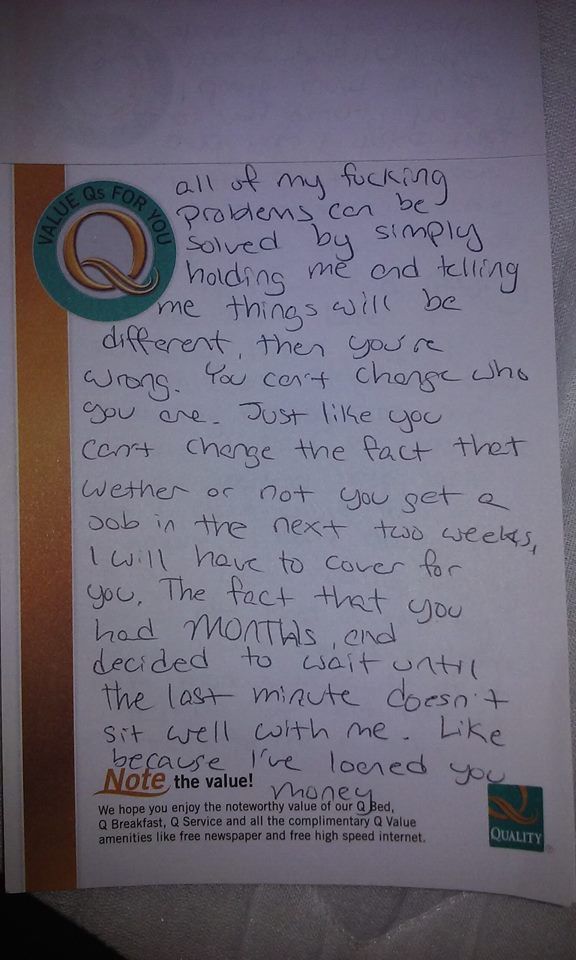 VALUE Qs FOR YOU
Q
all of my fucking
problems can be
solved by simply
holding me and telling
me things will be
different, then you're
wrong. You can't change who
you are. Just like you
can't change the fact that
wether or not you get a
Job in the next two weeks,
I will have to cover for
you. The fact that you
had MONTHs, and
decided to wait until
the last minute doesn't
sit well with me. Like
because I've loened you
money
Note the value!
We hope you enjoy the noteworthy value of our Q Bed,
Q Breakfast, Q Service and all the complimentary Q Value
amenities like free newspaper and free high speed internet.
QUALITY